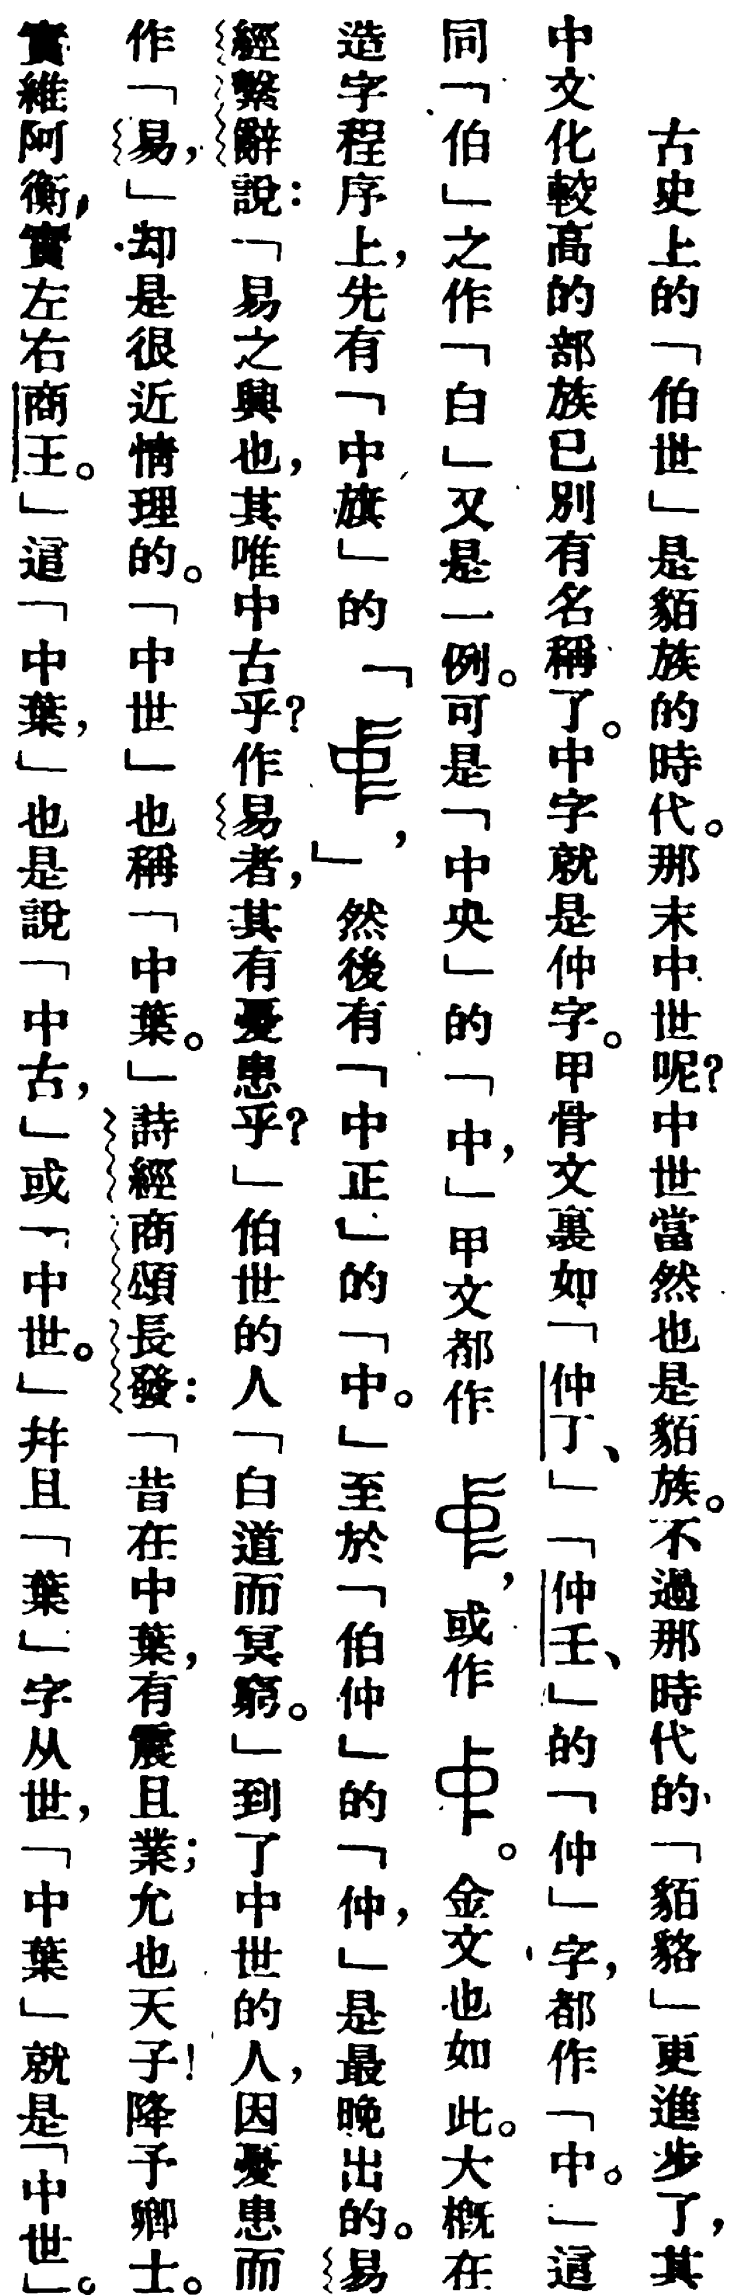 古史上的「伯世」是貊族的時代。那末中世呢？中世當然也是貊族。不過那時代的「貊貉」更進步了，其
中文化較高的部族已別有名稱了。中字就是仲字。甲骨文裏如「仲丁、」「仲壬、」的「仲」字，都作「中。」這
同「伯」之作「白」又是一例。可是「中央」的「中，」甲文都作，或作。金文也如此。大概在
造字程序上，先有「中旗」的「，」然後有「中正」的「中。」至於「伯仲」的「仲，」是最晚出的。易
經繫辭說：「易之興也，其唯中古乎？作易者，其有憂患乎？」伯世的人「白道而冥窮。」到了中世的人，因憂患而
作「易，」却是很近情理的。「中世」也稱「中葉。」詩經商頌長發：「昔在中葉，有震且業；允也天子！降予卿士。
實維阿衡，實左右商王。」這「中葉，」也是說「中古，」或「中世。」幷且「葉」字从世，「中葉」就是「中世」。